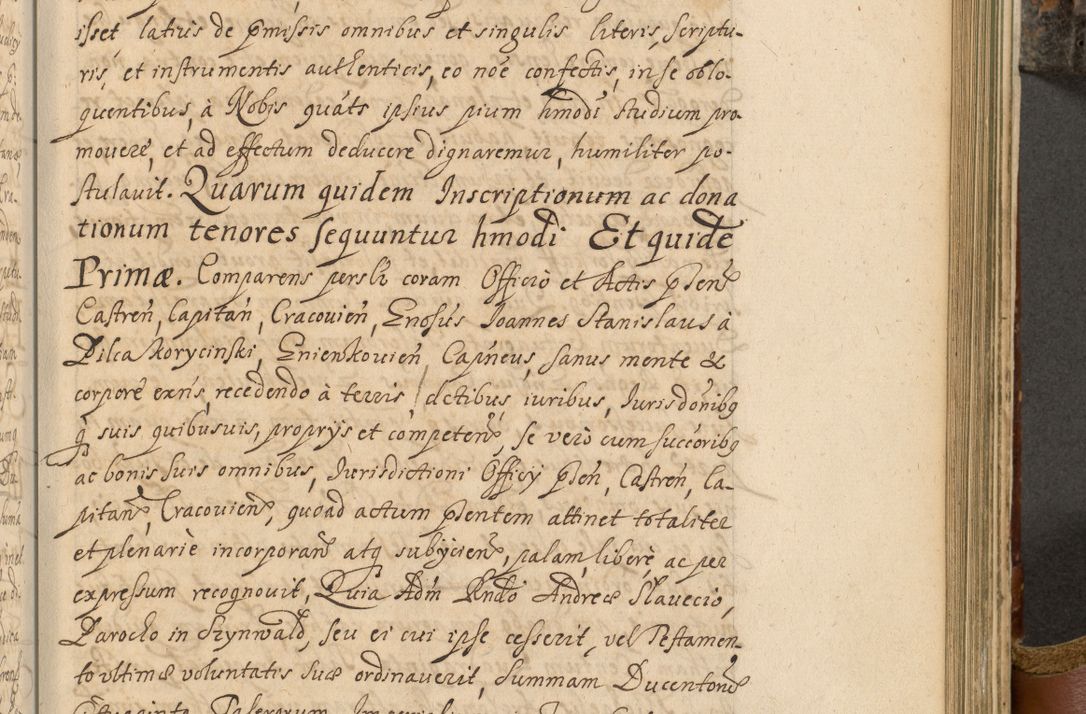 isset latius de pmissis omnibus et singulis literis, scriptu-
ris, et instrumentis authenticis, eo noe confectis, in se oblo-
quentibus, à Nobis quáts ipsius pium hmodi studium pro-
mouere, et ad effectum deducere dignaremur, humiliter po-
stulauit. Quarum quidem Inscriptionum ac dona
tionum tenores sequuntur hmodi Et quide
Primæ. Comparens persłr coram Officio et Actis pńen
Castreń, Capitań, Cracouień, Enosus Joannes Stanislaus à
Pilca Korycinski, Gnienkouień Capneus, sanus mente &
corpore exns, recedendo à terris, dctibus, iuribus, Jurisdonibq
q suis quibusuis, proprijs et competen, se vero cum succoribq
ac bonis suis omnibus, Jurisdictioni Officij pńen, Castreń, Ca-
pitan, Cracouien, quoad actum pńentem attinet totaliter
et plenariè incorporan atq subijcien, palam, liberè, ac per
expressum recognouit, Quia Adm Rndo Andreæ Slauecio,
Parocho in Szynwałd, seu ei cui ipse cesserit, vel Testamen-
to vltimæ voluntatis suæ ordinauerit, Summam Ducenton
Talerorum